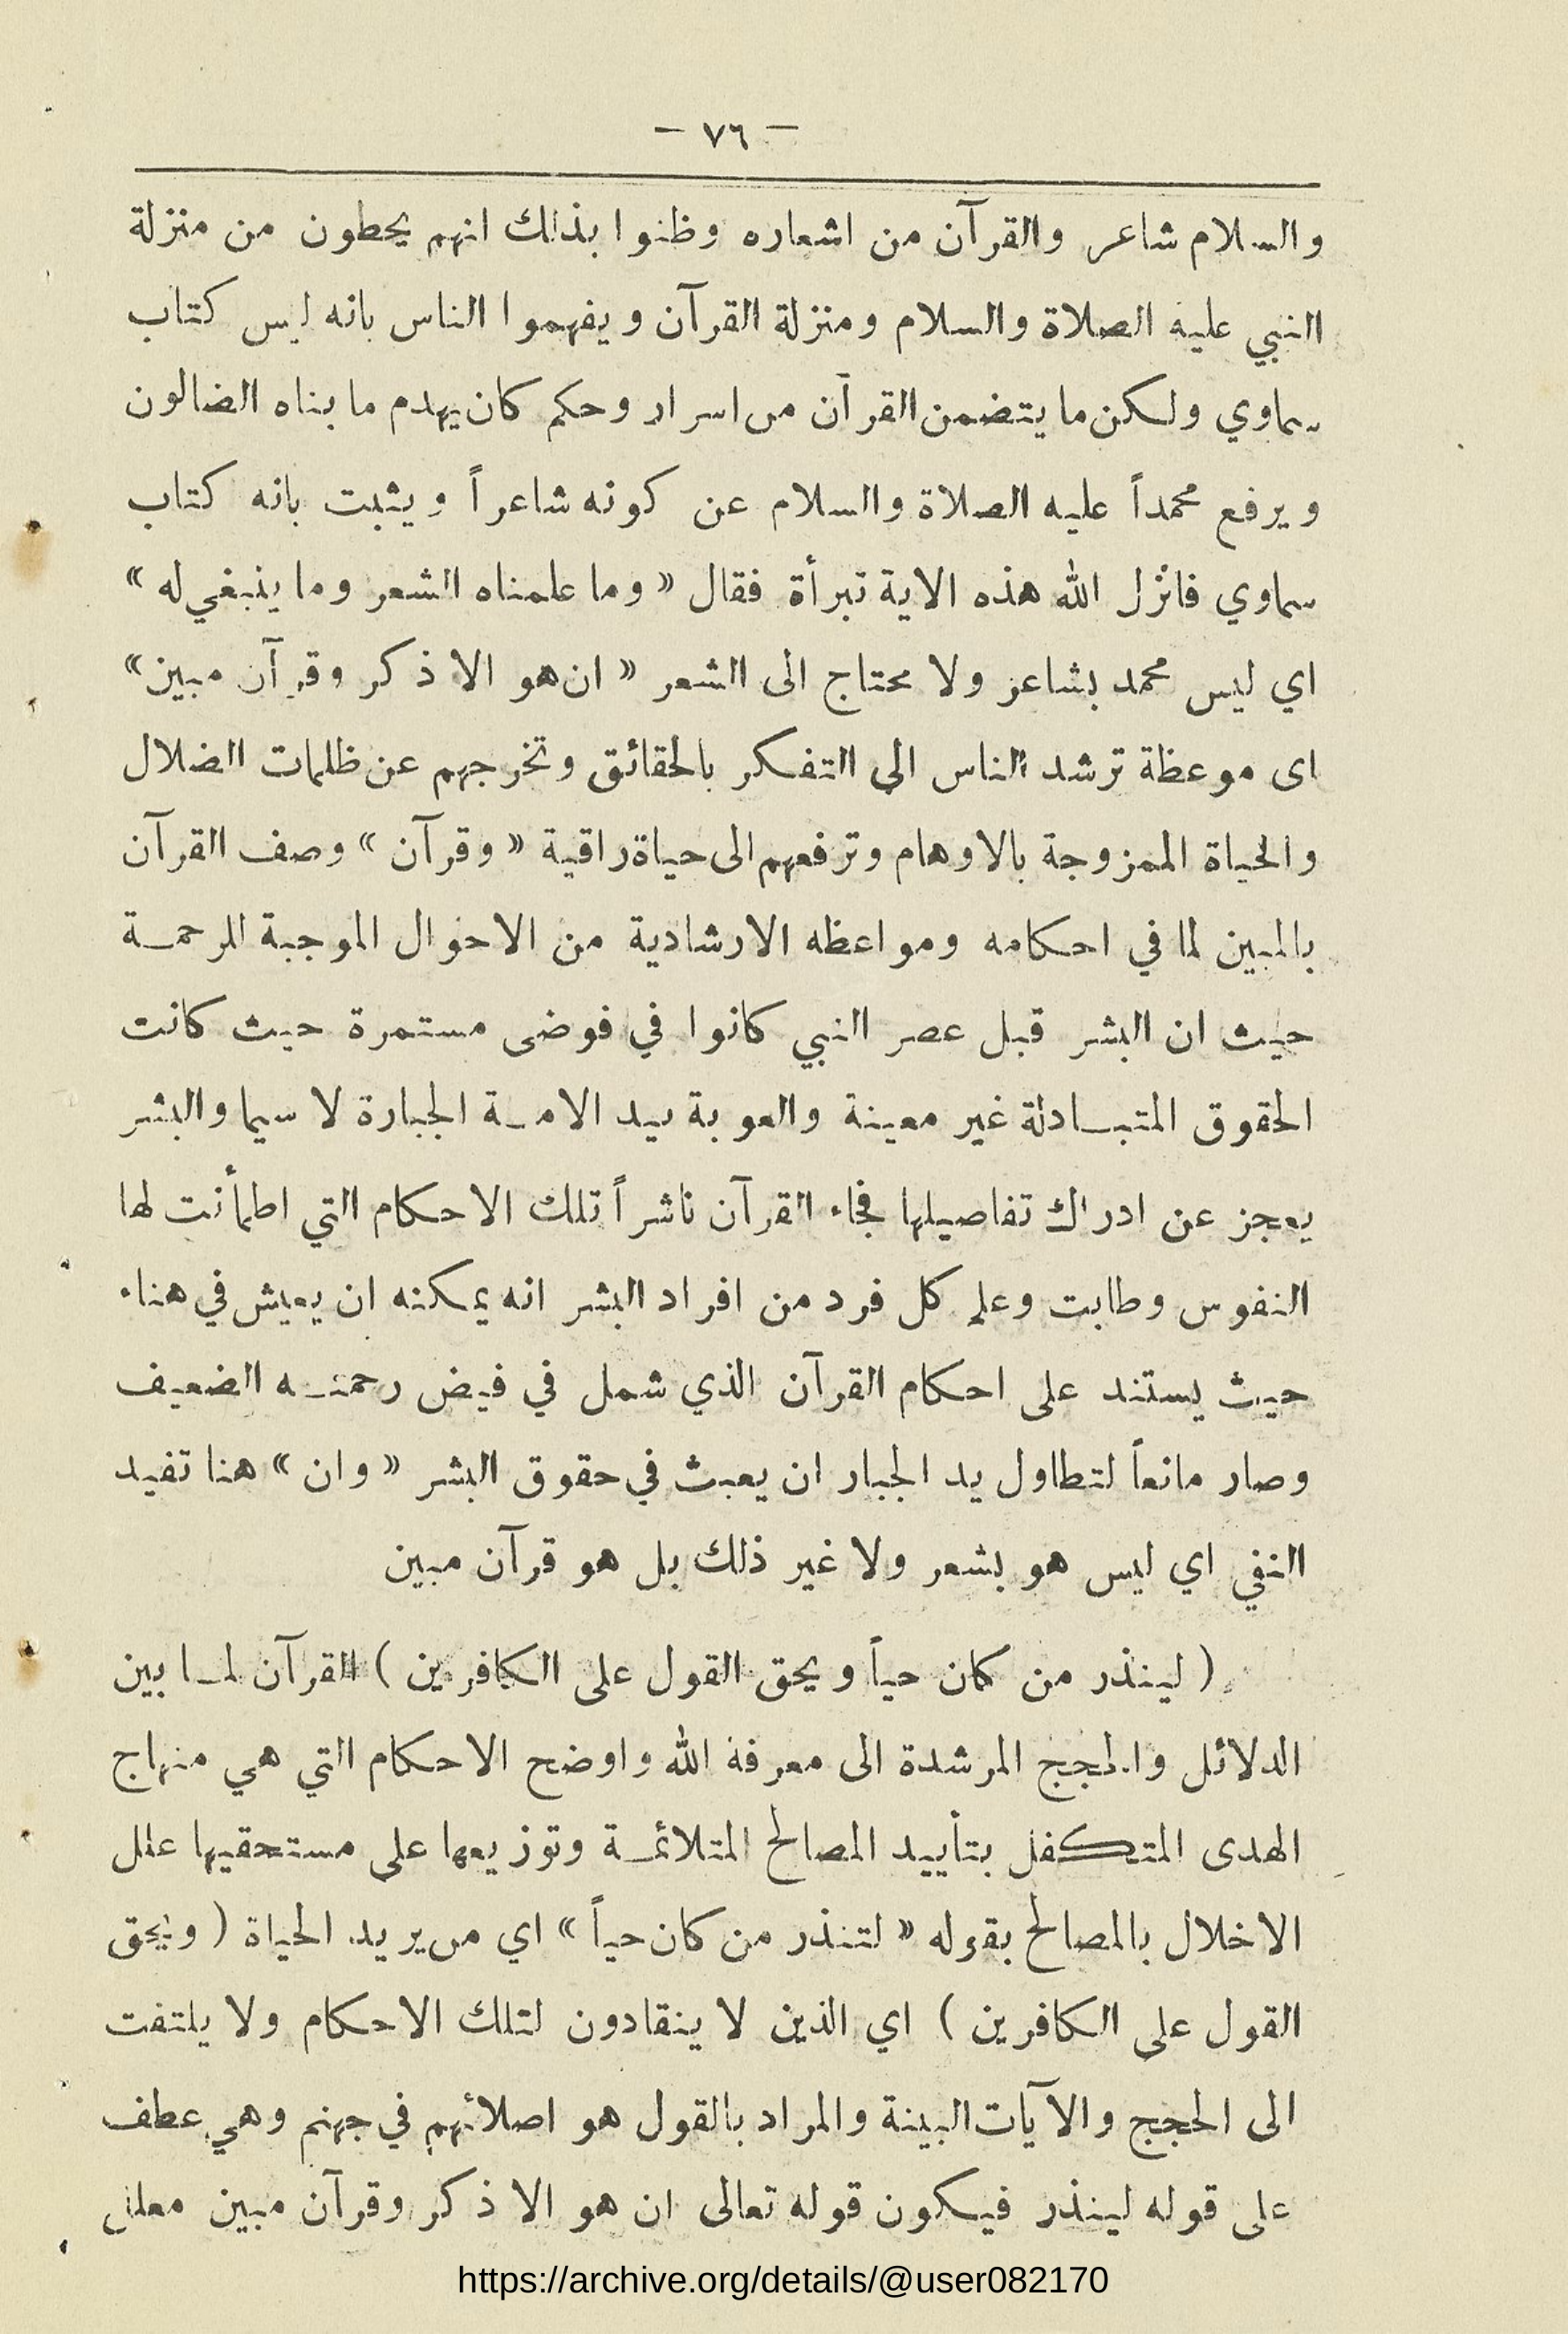 — ٧٦ —
والسلام شاعر والقرآن من اشعاره وظنوا بذلك انهم يحطون من منزلة
النبي عليه الصلاة والسلام ومنزلة القرآن ويفهموا الناس بانه ليس كتاب
سماوي ولكن ما يتضمن القرآن من اسرار وحكم كان يهدم ما بناه الضالون
ويرفع محمداً عليه الصلاة والسلام عن كونه شاعراً ويثبت بانه كتاب
سماوي فانزل الله هذه الاية تبرأة فقال « وما علمناه الشعر وما ينبغي له »
اي ليس محمد بشاعر ولا محتاج الى الشعر « ان هو الا ذكر وقرآن مبين »
اى موعظة ترشد الناس الى التفكر بالحقائق وتخرجهم عن ظلمات الضلال
والحياة الممزوجة بالاوهام وترفعهم الى حياة راقية « وقرآن » وصف القرآن
بالمبين لما في احكامه ومواعظه الارشادية من الاحوال الموجبة للرحمة
حيث ان البشر قبل عصر النبي كانوا في فوضى مستمرة حيث كانت
الحقوق المتبادلة غير معينة بيد الامة الجبارة لا سيما والبشر
يعجز عن ادراك تفاصيلها فجاء القرآن ناشراً تلك الاحكام التي اطمأنت لها
النفوس وطابت وعلم كل فرد من افراد البشر انه يمكنه ان يعيش في هناء
حيث يستند على احكام القرآن الذي شمل في فيض رحمته الضعيف
وصار مانعاً لتطاول يد الجبار ان يعبث في حقوق البشر « وان » هنا تفيد
النفي اي ليس هو بشعر ولا غير ذلك بل هو قرآن مبين
( لينذر من كان حياً ويحق القول على الكافرين ) القرآن لما بين
الدلائل والحجج المرشدة الى معرفة الله واوضح الاحكام التي هي منهاج
الهدى المتكفل بتأييد المصالح المتلائمة وتوزيعها على مستحقيها علل
الاخلال بالمصالح بقوله « لتنذر من كان حياً » اي من يريد الحياة ( ويحق
القول على الكافرين ) اي الذين لا ينقادون لتلك الاحكام ولا يلتفت
الى الحجج والآيات البينة والمراد بالقول هو اصلائهم في جهنم وهي عطف
على قوله لينذر فيكون قوله تعالى ان هو الا ذكر وقرآن مبين
https://archive.org/details/@user082170